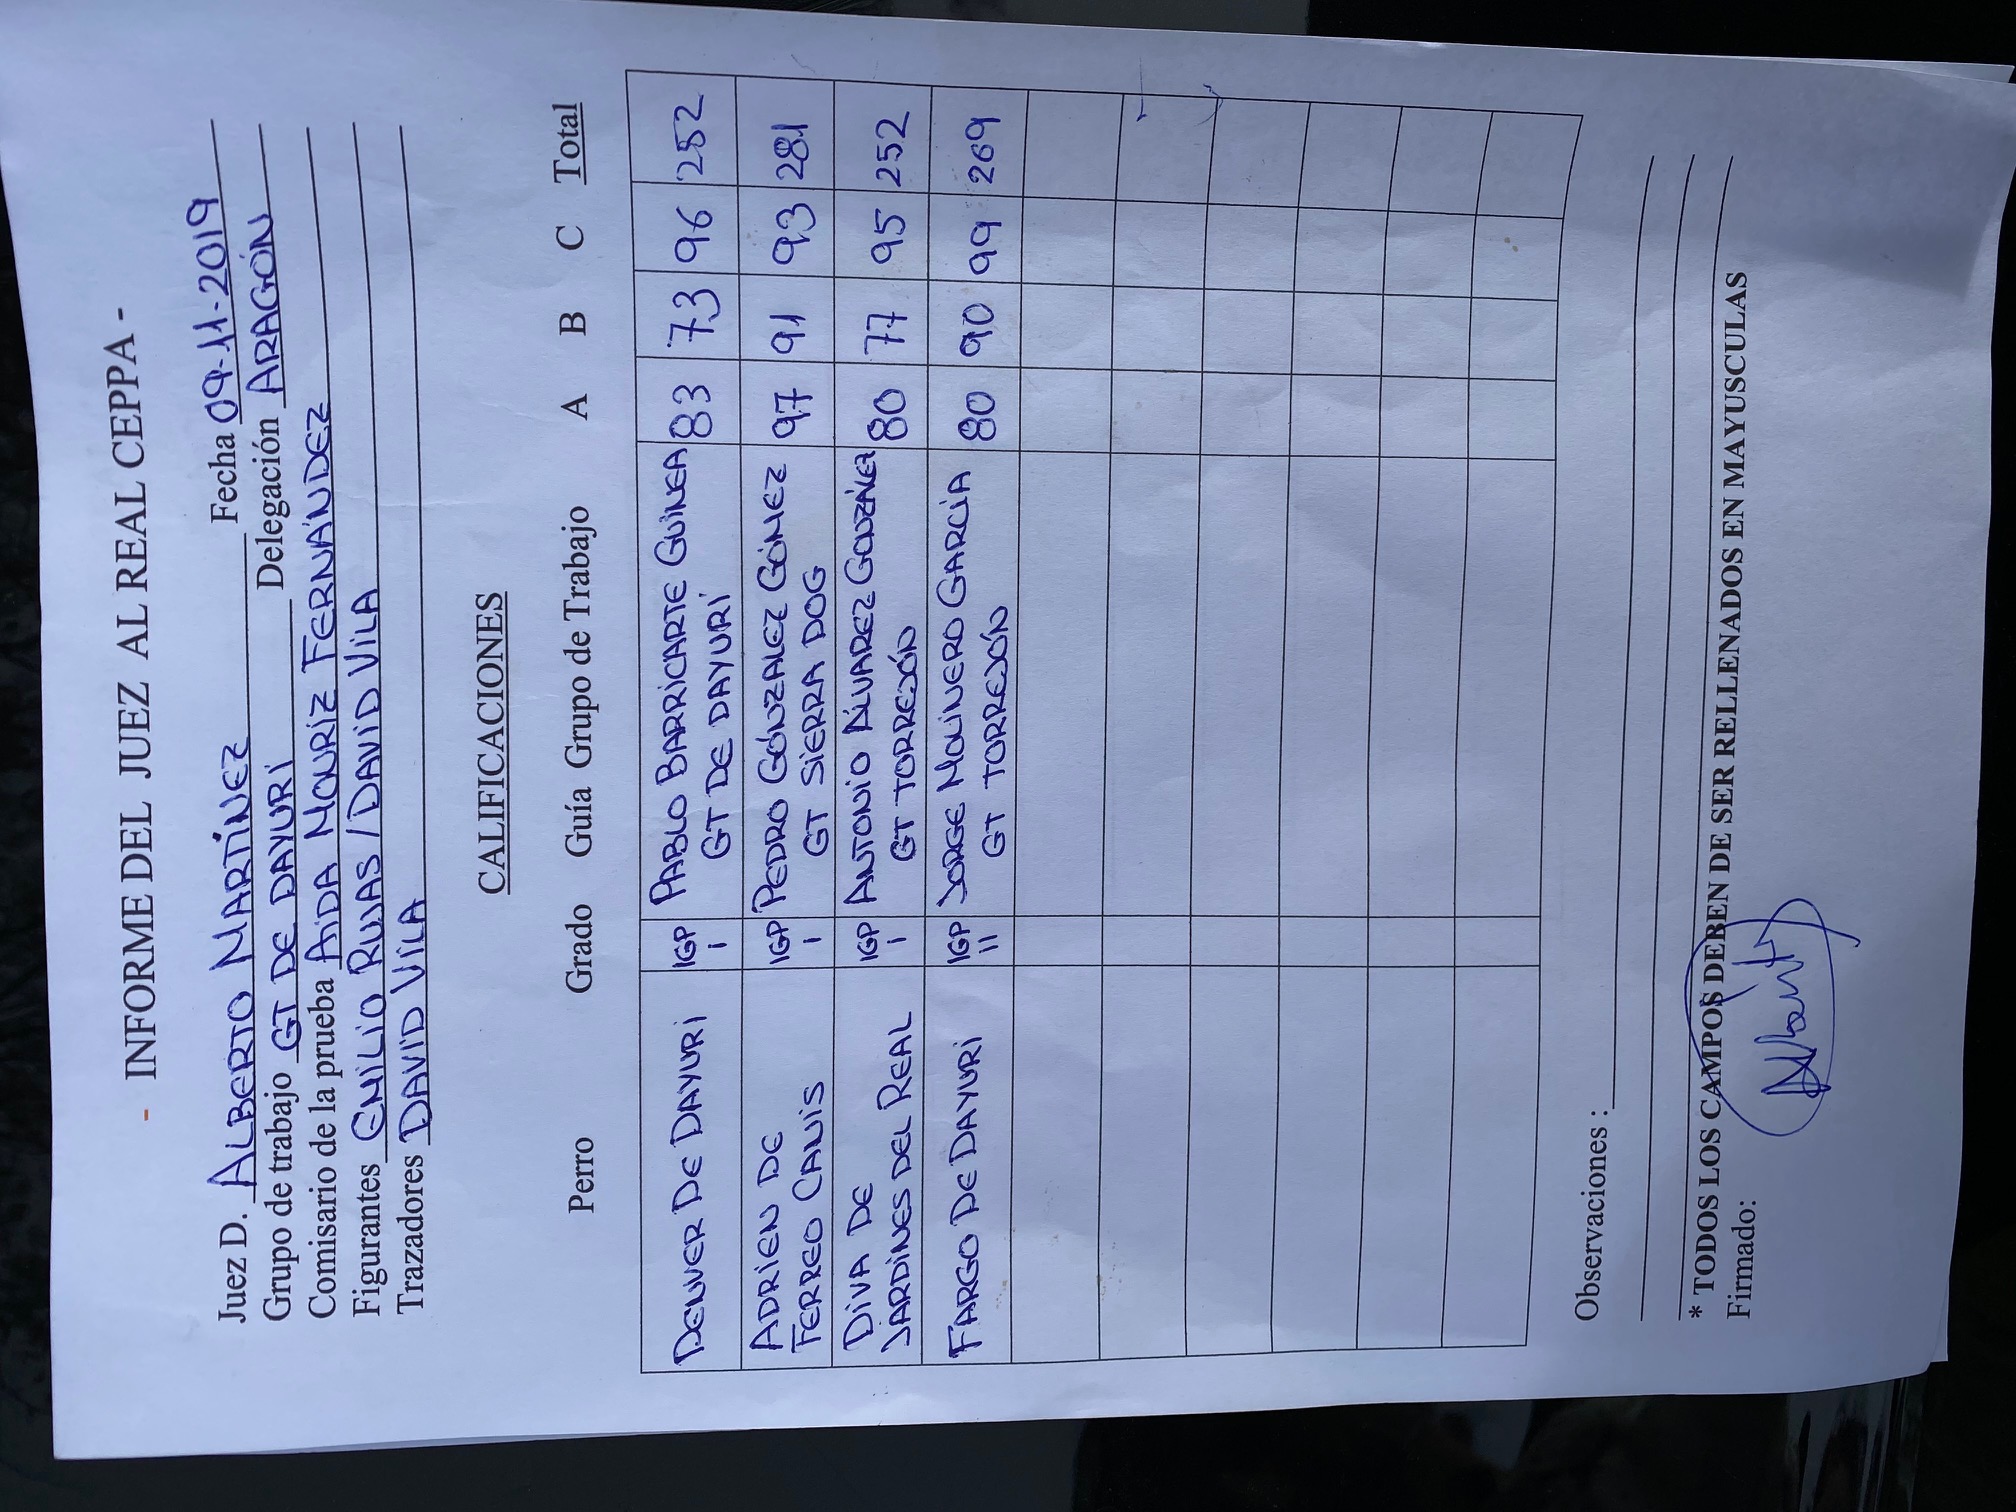 - INFORME DEL JUEZ AL REAL CEPPA -
Juez D. ALBERTO MARTÍNEZ Fecha 09-11-2019
Grupo de trabajo GT DE DAYURI Delegación ARAGÓN
Comisario de la prueba AIDA MOURIZ FERNÁNDEZ
Figurantes EMILIO RUJAS / DAVID VILA
Trazadores DAVID VILA
CALIFICACIONES
Perro Grado Guía Grupo de Trabajo A B C Total
DENVER DE DAYURI IGP I PABLO BARRICARTE GUINEA 83 73 96 252
GT DE DAYURI
ADRIEN DE IGP I PEDRO GÓNZALEZ GÓMEZ 97 91 93 281
FERREO CANIS GT SIERRA DOG
DIVA DE IGP I ANTONIO ÁLVAREZ GONZÁLEZ 80 77 95 252
JARDINES DEL REAL GT TORREJÓN
FARGO DE DAYURI IGP II JORGE MOLINERO GARCÍA 80 90 99 269
GT TORREJÓN
Observaciones :
* TODOS LOS CAMPOS DEBEN DE SER RELLENADOS EN MAYUSCULAS
Firmado: